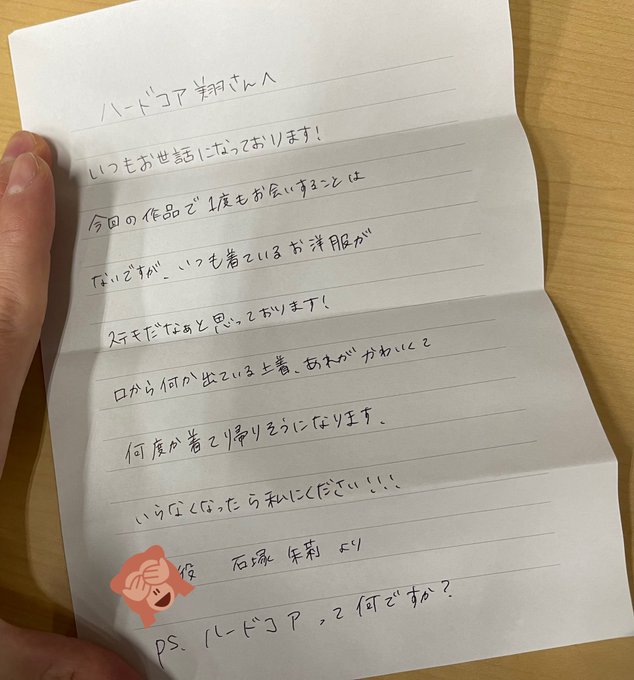 ハードコア 翔さんへ
いつもお世話になっております!
今回の作品で1度もお会いすることは
ないですが、いつも着ているお洋服が
ステキだなぁと思っております!
口から何か出ている上着、あれがかわいくて
何度か着て帰りそうになります。
いらなくなったら私にください!!!
役 石塚 朱莉 より
PS. ハードコアって何ですか?